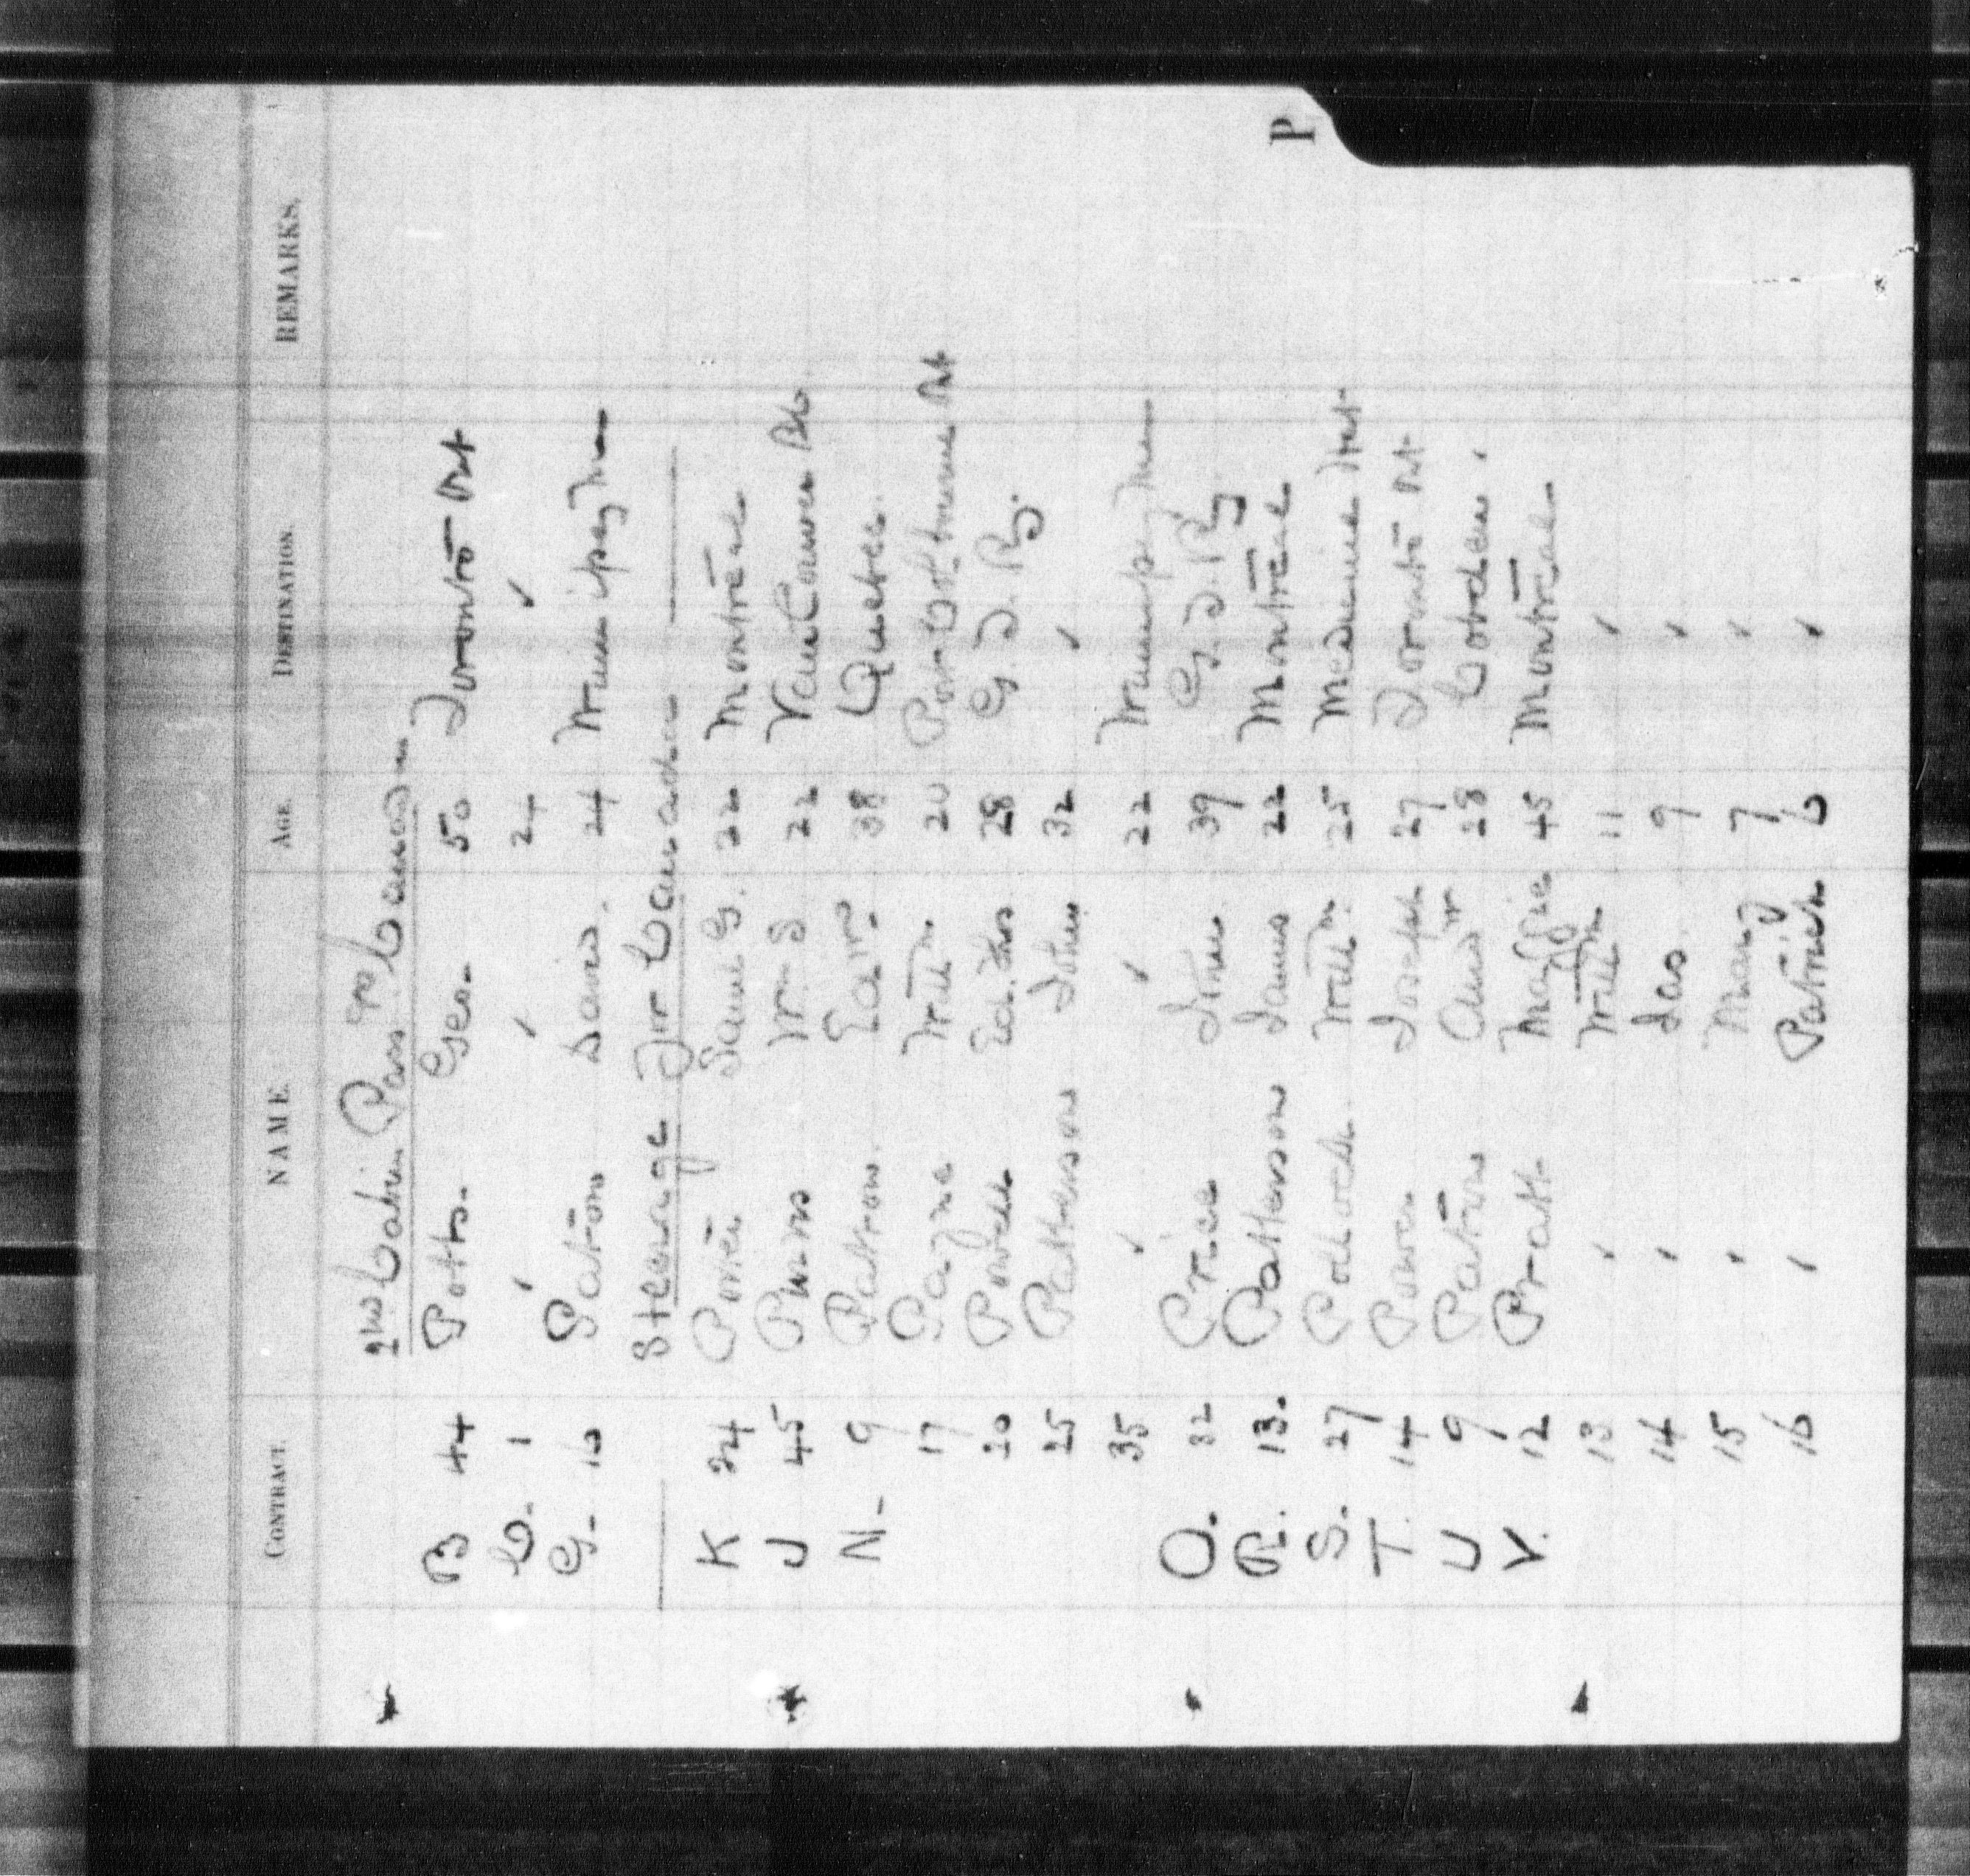 P
CONTRACT. NAME. AGE. DESTINATION. REMARKS.
2nd Cabin Pass for Canada
B 44 Potts. Geo. 50 Toronto Ont
C. 1 ✓ ✓ 24 ✓
G. 10 Paton David. 24 Winnipeg Man
Steerage For Canada
K 24 Porter Saml G. 22 Montreal
J 45 Wm S 22 Vancouver BC
N. 9 Patron. 38 Quebec.
17 Payne Willm 20 Port Colborne Ont
20 Powell Ed. Thos 28 G. T. Ry.
25 Pattenson John 32 ✓
35 ✓ ✓ 22 Winnipeg Man
O. 32 Price 39 G. T. Ry
R. 13. Patterson James 22 Montreal
S. 27 Willm. 25 Medicine Hat
T. 14 Power Joseph 27 Toronto Ont
U 9 Paton 28 Cobden.
V. 12 Pratt Maggie 45 Montreal
13 ✓ Willm 11 ✓
14 ✓ Jas 9 ✓
15 ✓ Mary 7 ✓
16 ✓ Patrick 6 ✓